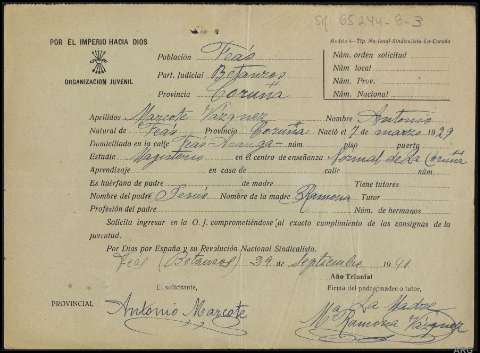 Sig 65244-8-3
POR EL IMPERIO HACIA DIOS
ORGANIZACION JUVENIL
Modelo 4.-Tip. Nacional-Sindicalista-La Coruña
Población Feás
Part. Judicial Betanzos
Provincia Coruña
Núm. orden solicitud
Núm. local
Núm. Prov.
Núm. Nacional
Apellidos Marcote Vázquez Nombre Antonio
Natural de Feás Provincia Coruña Nació el 7 de marzo 1929
Domiciliado en la calle Feás-Aranga- núm piso puerta
Estudia Magisterio en el centro de enseñanza Normal de La Coruña
Aprendizaje en casa de calle núm.
Es huérfano de padre de madre Tiene tutores
Nombre del padre Jesús Nombre de la madre Ramona Tutor
Profesión del padre Núm. de hermanos
Solicita ingresar en la O. J. comprometiéndose al exacto cumplimiento de las consignas de la
juventud.
Por Dios por España y su Revolución Nacional Sindicalista.
Feás (Betanzos) 29 de Septiembre 1941
Año Triunfal
El solicitante,
Firma del padre, madre o tutor,
PROVINCIAL
Antonio Marcote
La Madre
Mª Ramona Vázquez
ARG